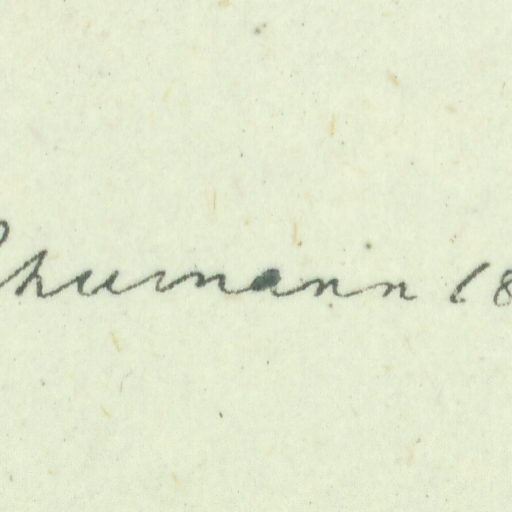 Schumann 18